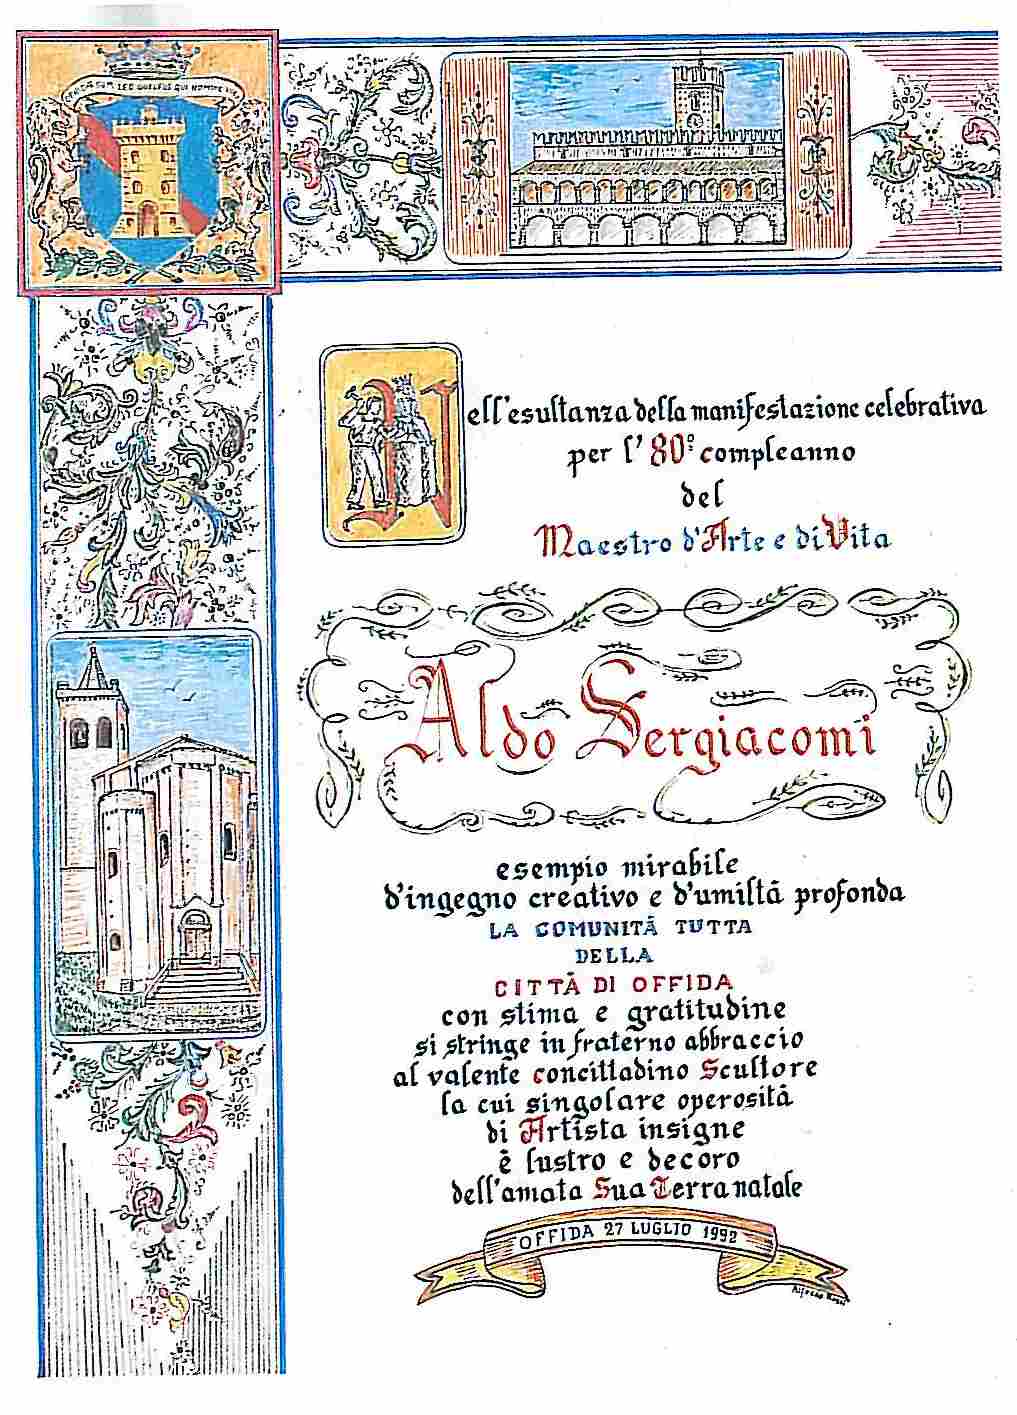 SED GUELFUS QUI NOMINE
Nell'esultanza della manifestazione celebrativa
per l'80° compleanno
del
Maestro d'Arte e di Vita
Aldo Sergiacomi
esempio mirabile
d'ingegno creativo e d'umiltà profonda
LA COMUNITÀ TUTTA
DELLA
CITTÀ DI OFFIDA
con stima e gratitudine
si stringe in fraterno abbraccio
al valente concittadino Scultore
la cui singolare operosità
di Artista insigne
è lustro e decoro
dell'amata Sua Terra natale
OFFIDA 27 LUGLIO 1992